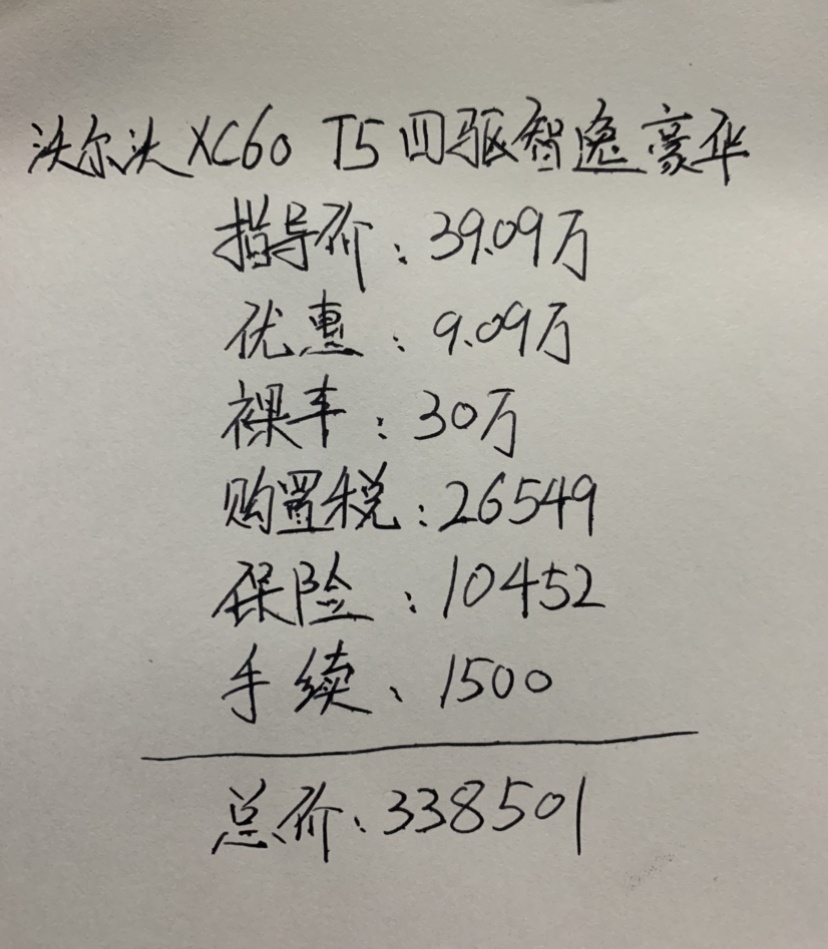 沃尔沃XC60 T5四驱智逸豪华
指导价：39.09万
优惠：9.09万
裸车：30万
购置税：26549
保险：10452
手续、1500
总价：338501